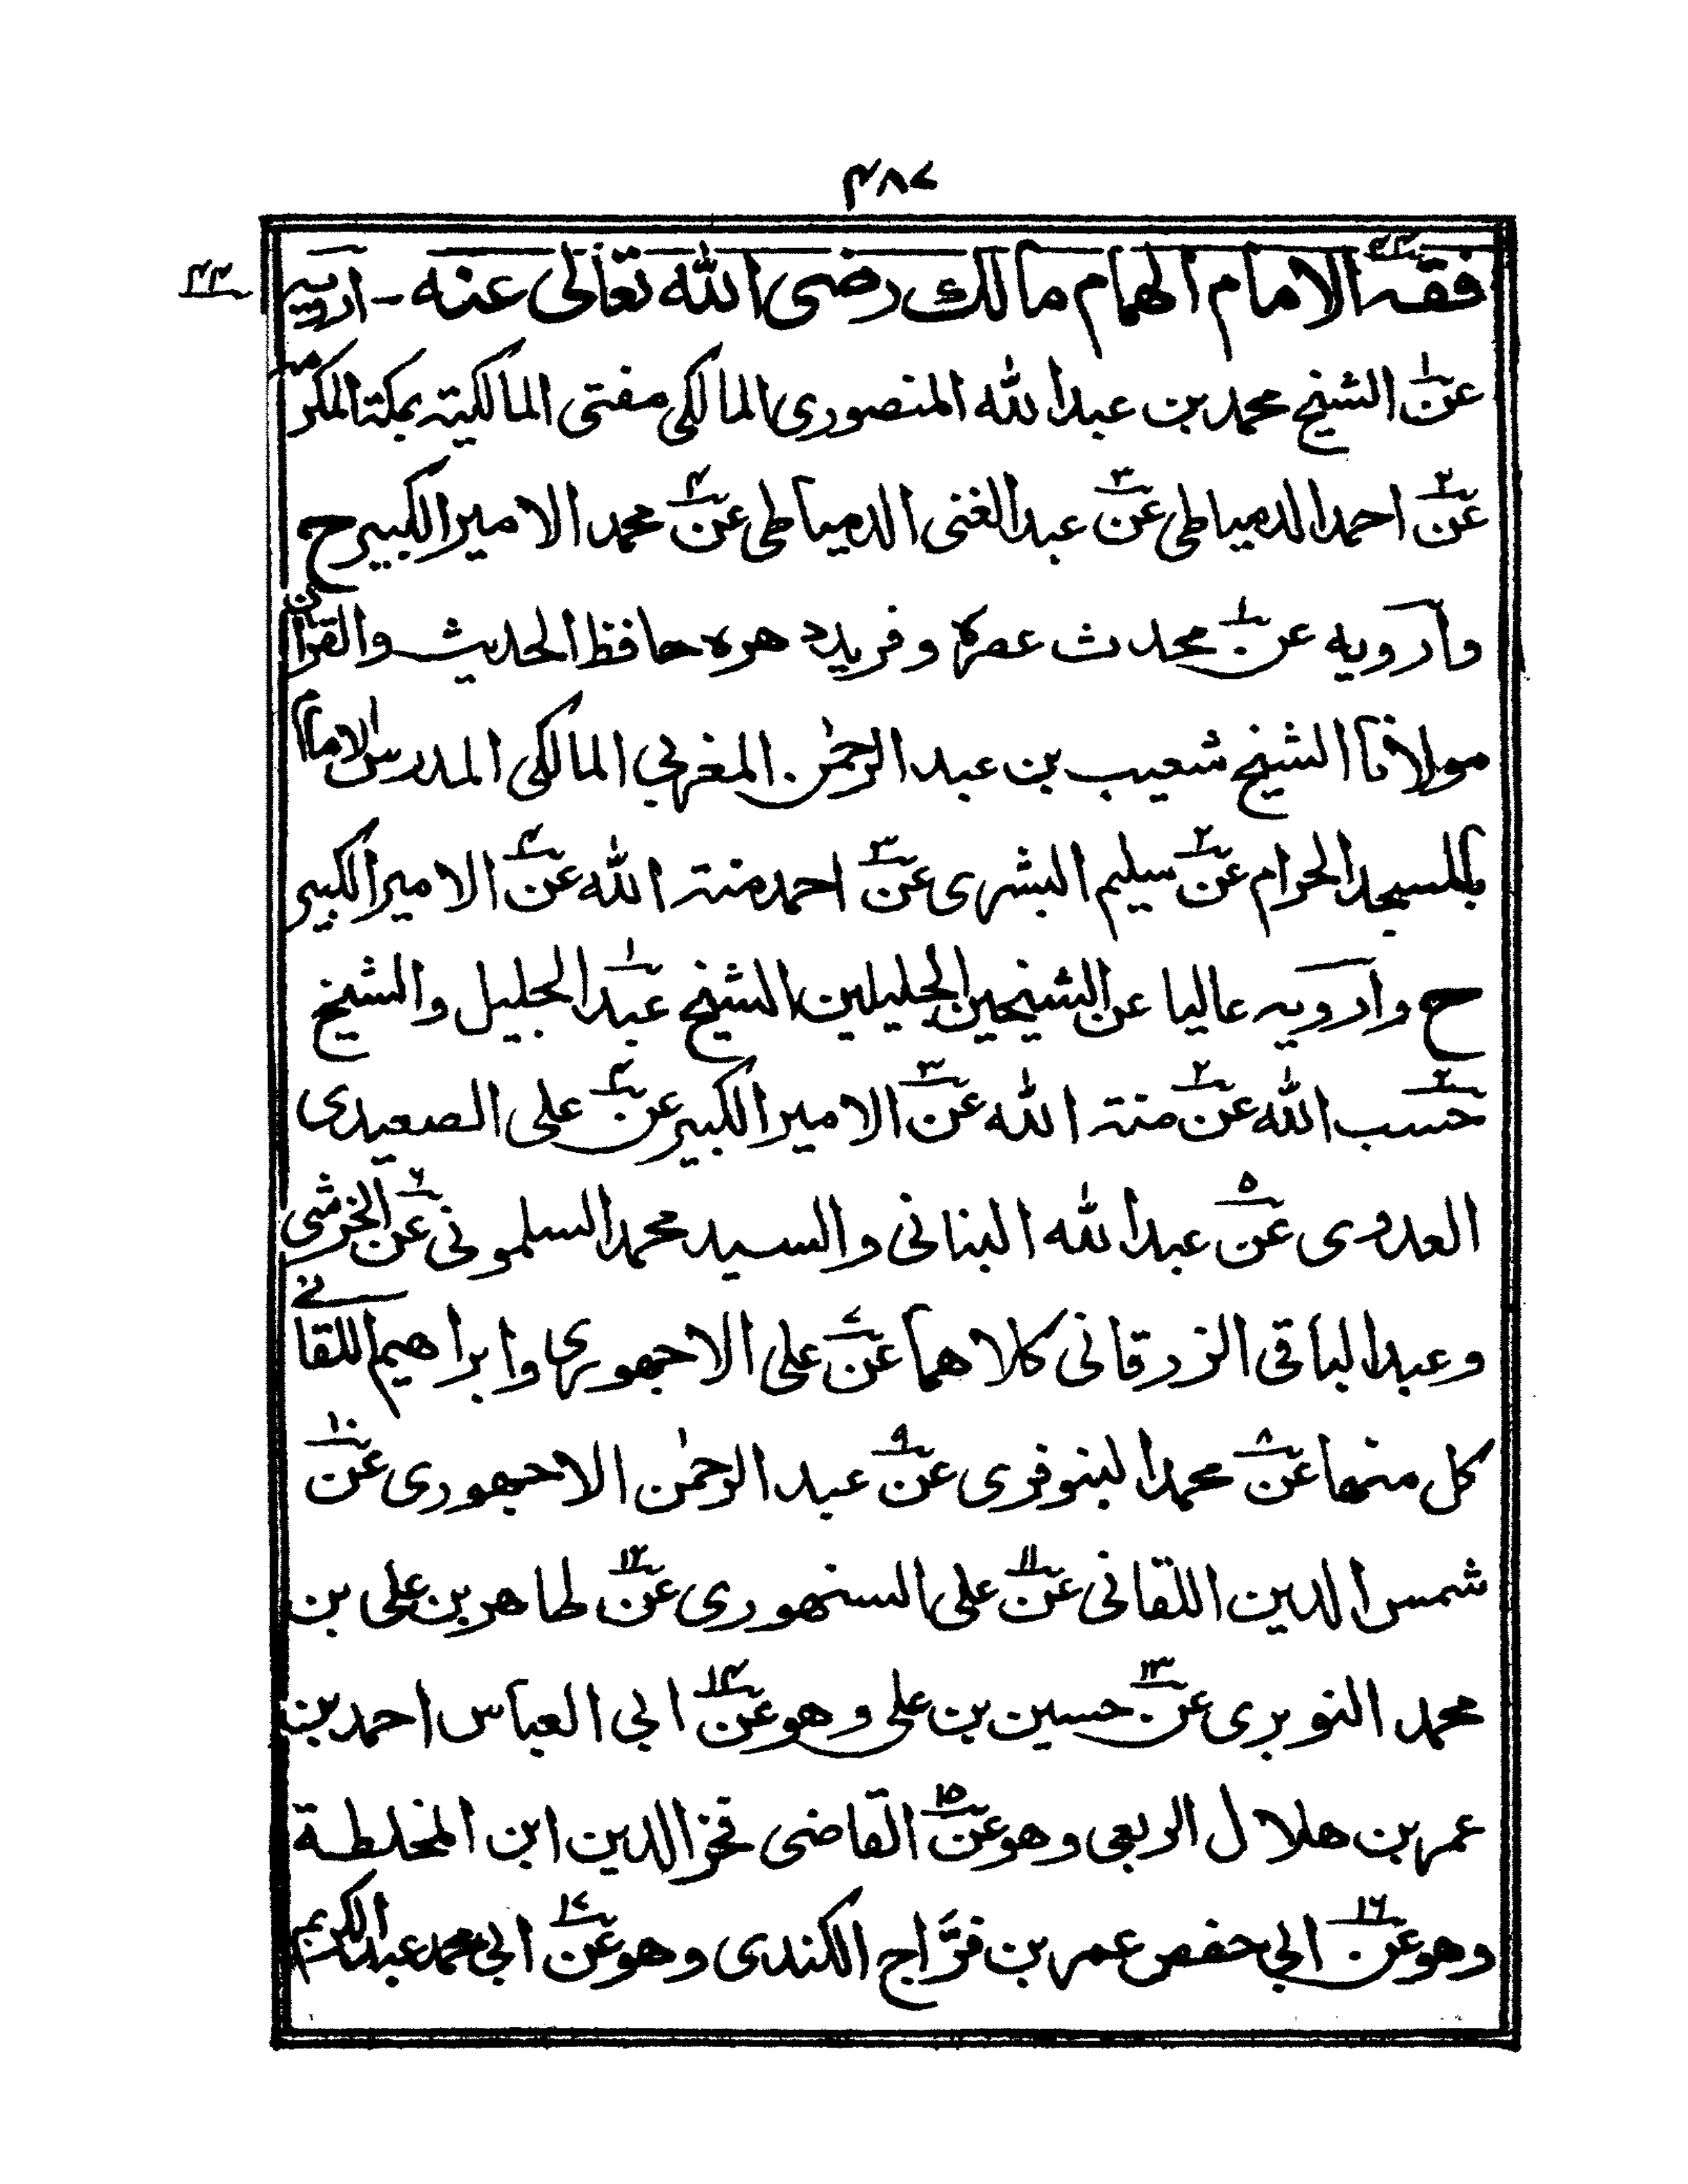 ۴۸۷
۴۴
فقہ الامام الهمام مالك رضى الله تعالٰى عنه - ارويہ
عن۱ الشيخ محمد بن عبد الله المنصورى المالكى مفتى المالكيته بمكة المكرمہ
عن۲ احمد الدمياطى عن۳ عبد الغنى الدمياطى عن۴ محمد الامير الكبير ح
وأرويه عن۱ محدث عصره وفريد دهره حافظ الحديث والقرآن
مولانا الشيخ شعيب بن عبد الرحمٰن المغربي المالكى المدرس الامام
بالمسجد الحرام عن۲ سليم البشرى عن۳ احمد منتہ الله عن۴ الامير الكبير
ح وارويہ عاليا عن الشيخين الجليلين الشيخ عبد۱ الجليل والشيخ
حسب۲ الله عن۲ منتہ الله عن۳ الامير الكبير عن۴ على الصعيدى
العدوى عن۵ عبد الله البنانى والسيد محمد السلمونى عن۶ الخرشى
وعبد الباقى الزرقانى كلاهما عن۷ على الاجهورى وابراهيم اللقانى
كل منهما عن۸ محمد البنوفرى عن۹ عبد الرحمٰن الاجهورى عن۱۰
شمس الدين اللقانى عن۱۱ على السنهورى عن۱۲ طاهر بن على بن
محمد النويرى عن۱۳ حسين بن على وهو عن۱۴ ابي العباس احمد بن
عمر بن هلال الربعى وهو عن۱۵ القاضى فخر الدين ابن المخلطة
وهو عن۱۶ ابي حفص عمر بن فرّاج الكندى وهو عن۱۷ ابي محمد عبد الكريم